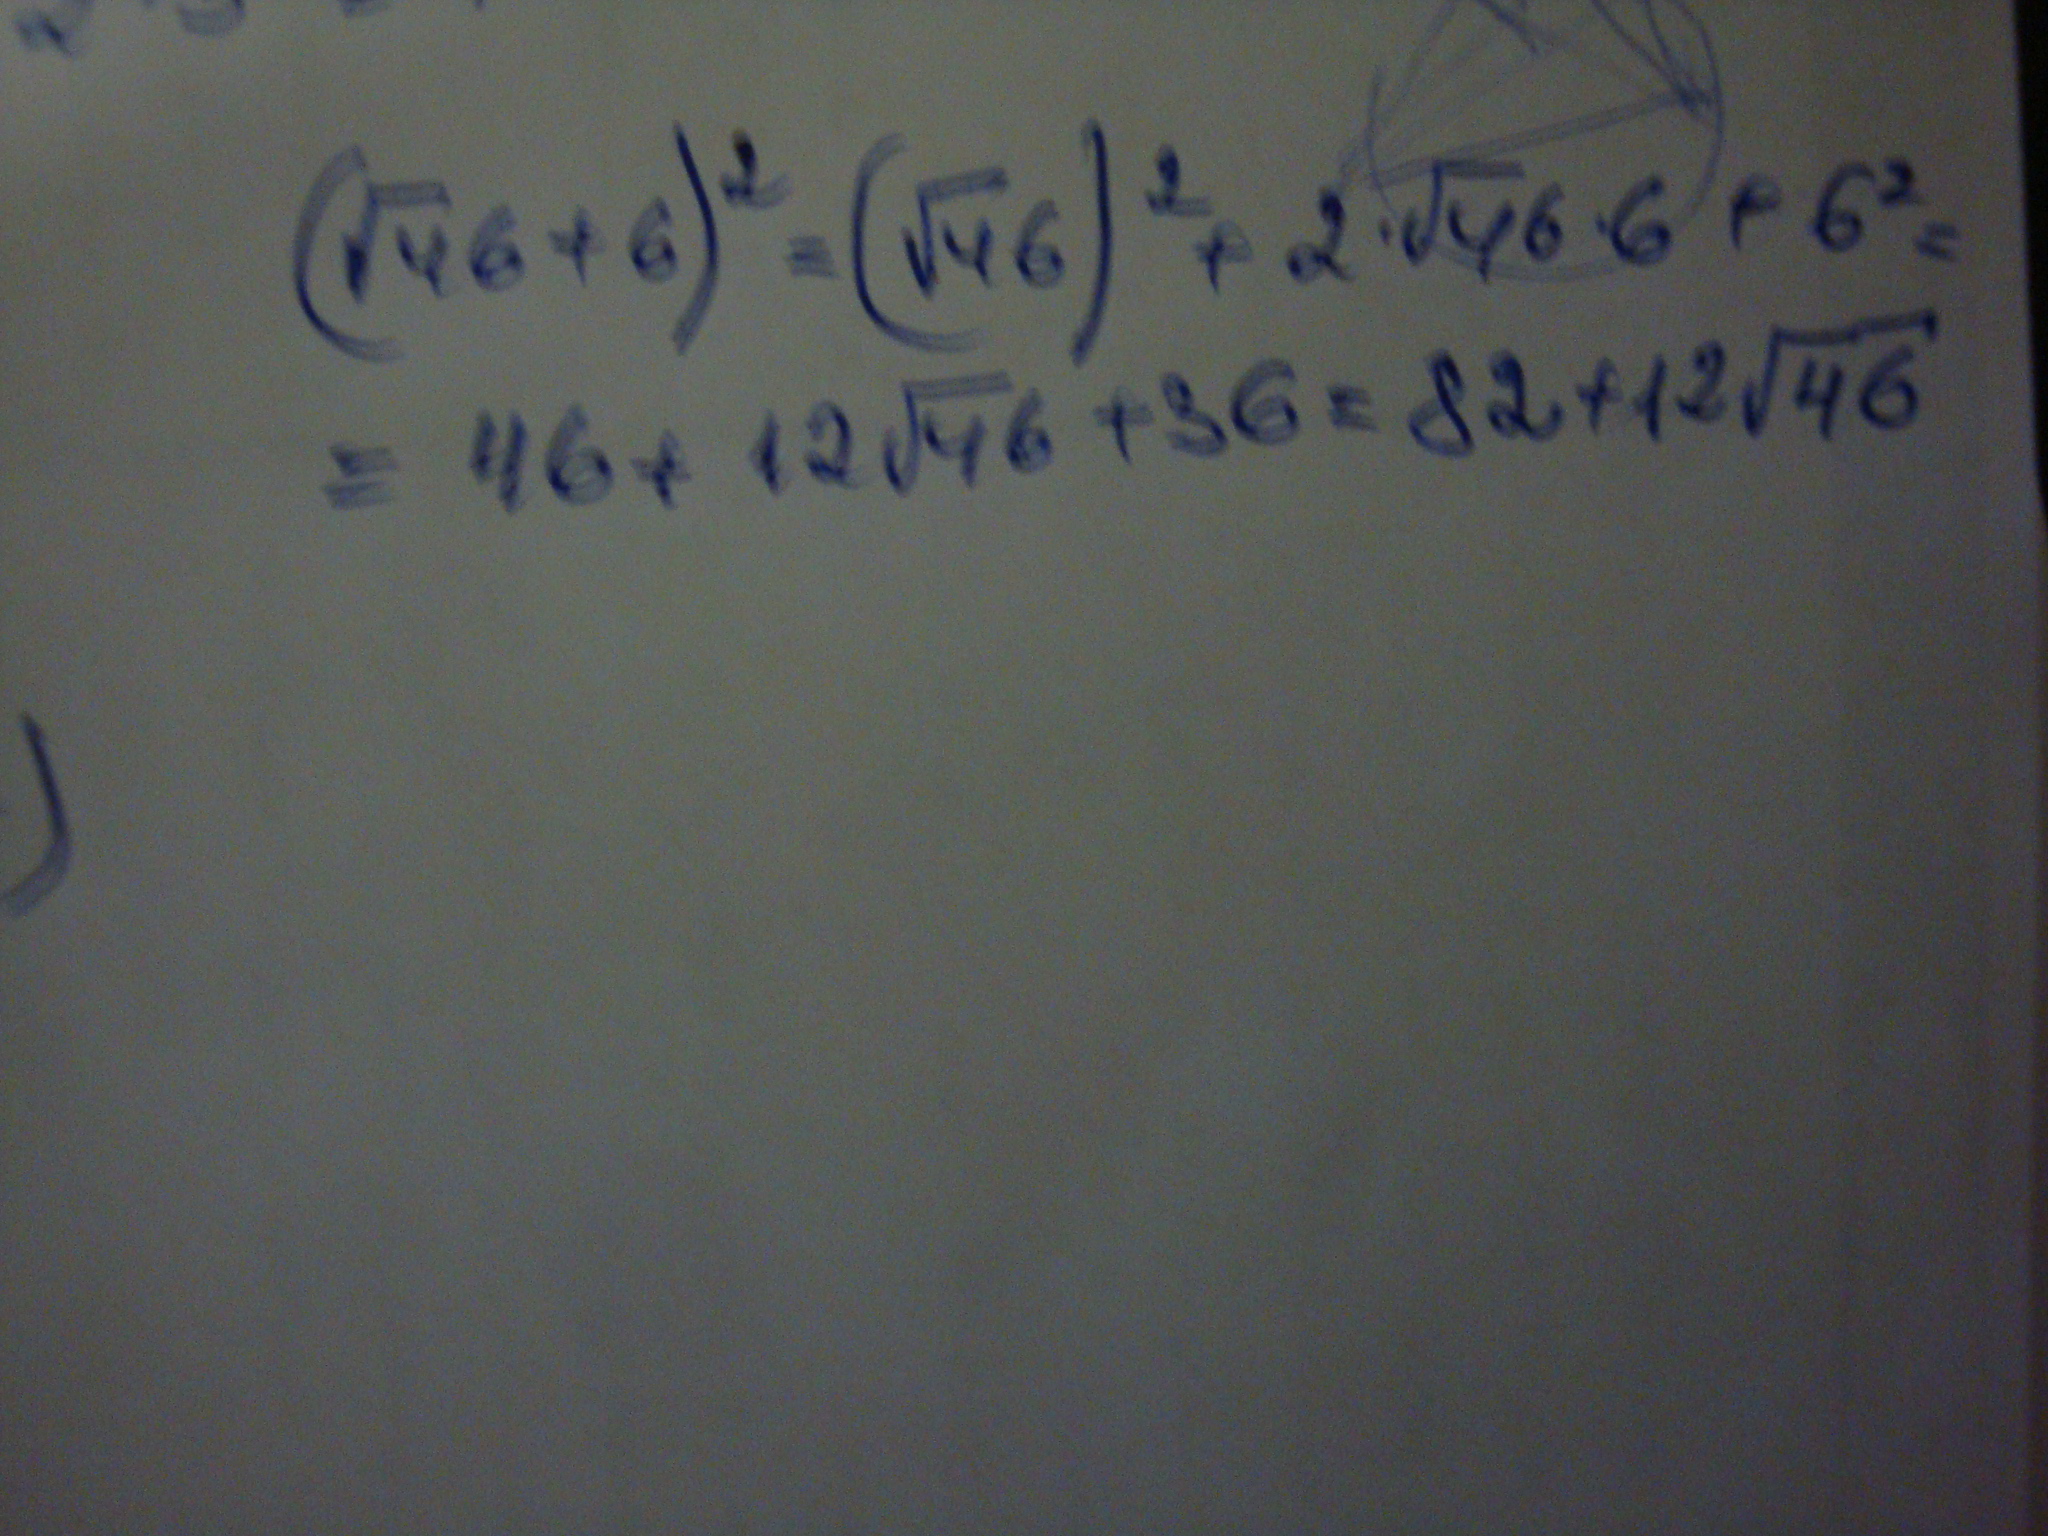 (√46+6)²=(√46)²+2·√46·6+6²=
=46+12√46+36=82+12√46
)